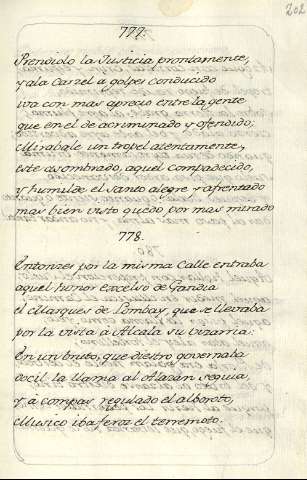 202
777.
Prendiolo la Justicia prontamente,
y ala Carzel a golpes conducido
iva con mas aprecio entre la gente
que en el de acriminado y ofendido:
Mirabale un tropel atentamente,
este asombrado, aquel compadecido,
y humilde el Santo alegre y afrentado
mas bien visto quedo, por mas mirado
778.
Entonzes por la misma Calle entraba
aquel honor excelso de Gandia
el Marques de Lombay, que se llevaba
por la vista à Alcala su vizarria:
En un bruto, que diestro governaba
docil la llama al Alazán seguia,
y à compas regulado el alboroto,
Musico iba feroz el terremoto.